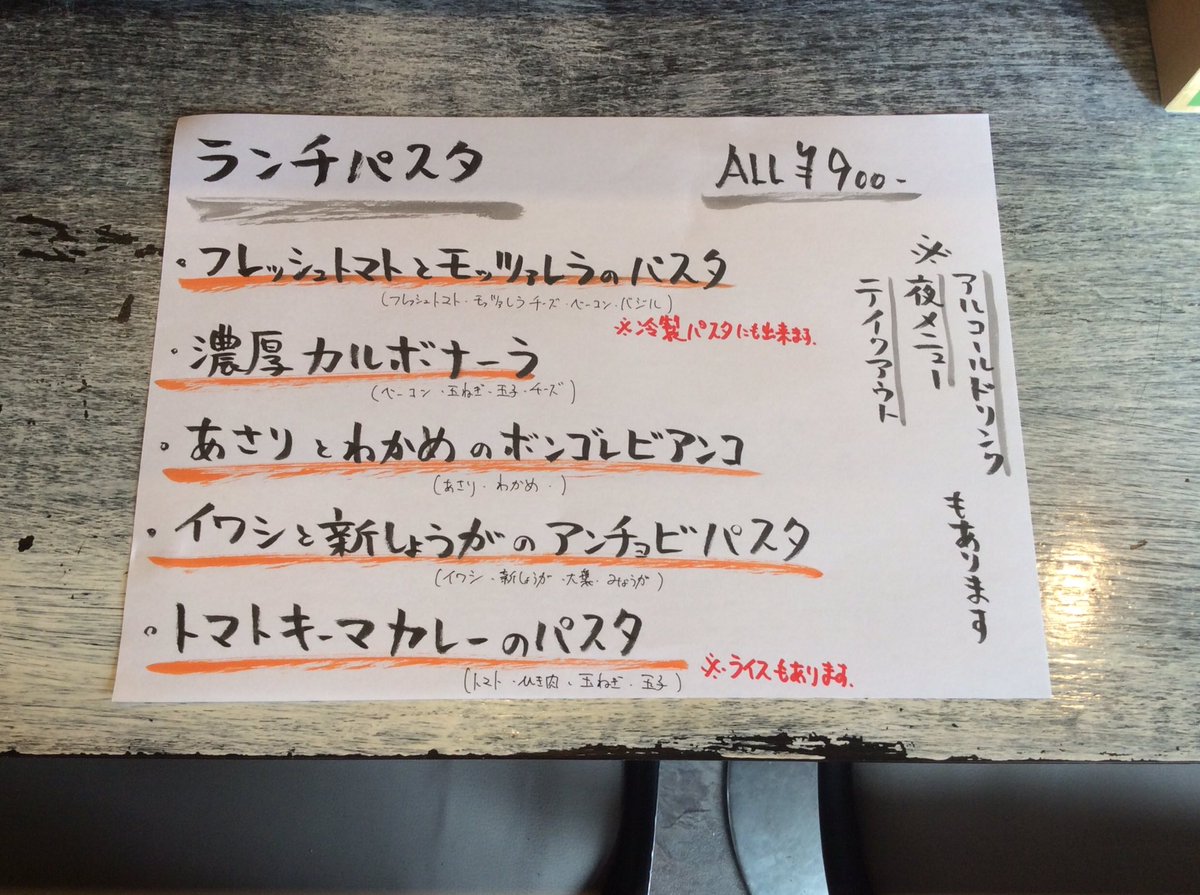 ランチパスタ
ALL ¥900-
・フレッシュトマトとモッツァレラのパスタ
(フレッシュトマト・モッツァレラチーズ・ベーコン・バジル)
※冷製パスタにも出来ます。
・濃厚カルボナーラ
(ベーコン・玉ねぎ・玉子・チーズ)
・あさりとわかめのボンゴレビアンコ
(あさり・わかめ・)
・イワシと新しょうがのアンチョビパスタ
(イワシ・新しょうが・大葉・みょうが)
・トマトキーマカレーのパスタ
(トマト・ひき肉・玉ねぎ・玉子)
※ライスもあります。
※
アルコールドリンク
夜メニュー
テイクアウト
もあります